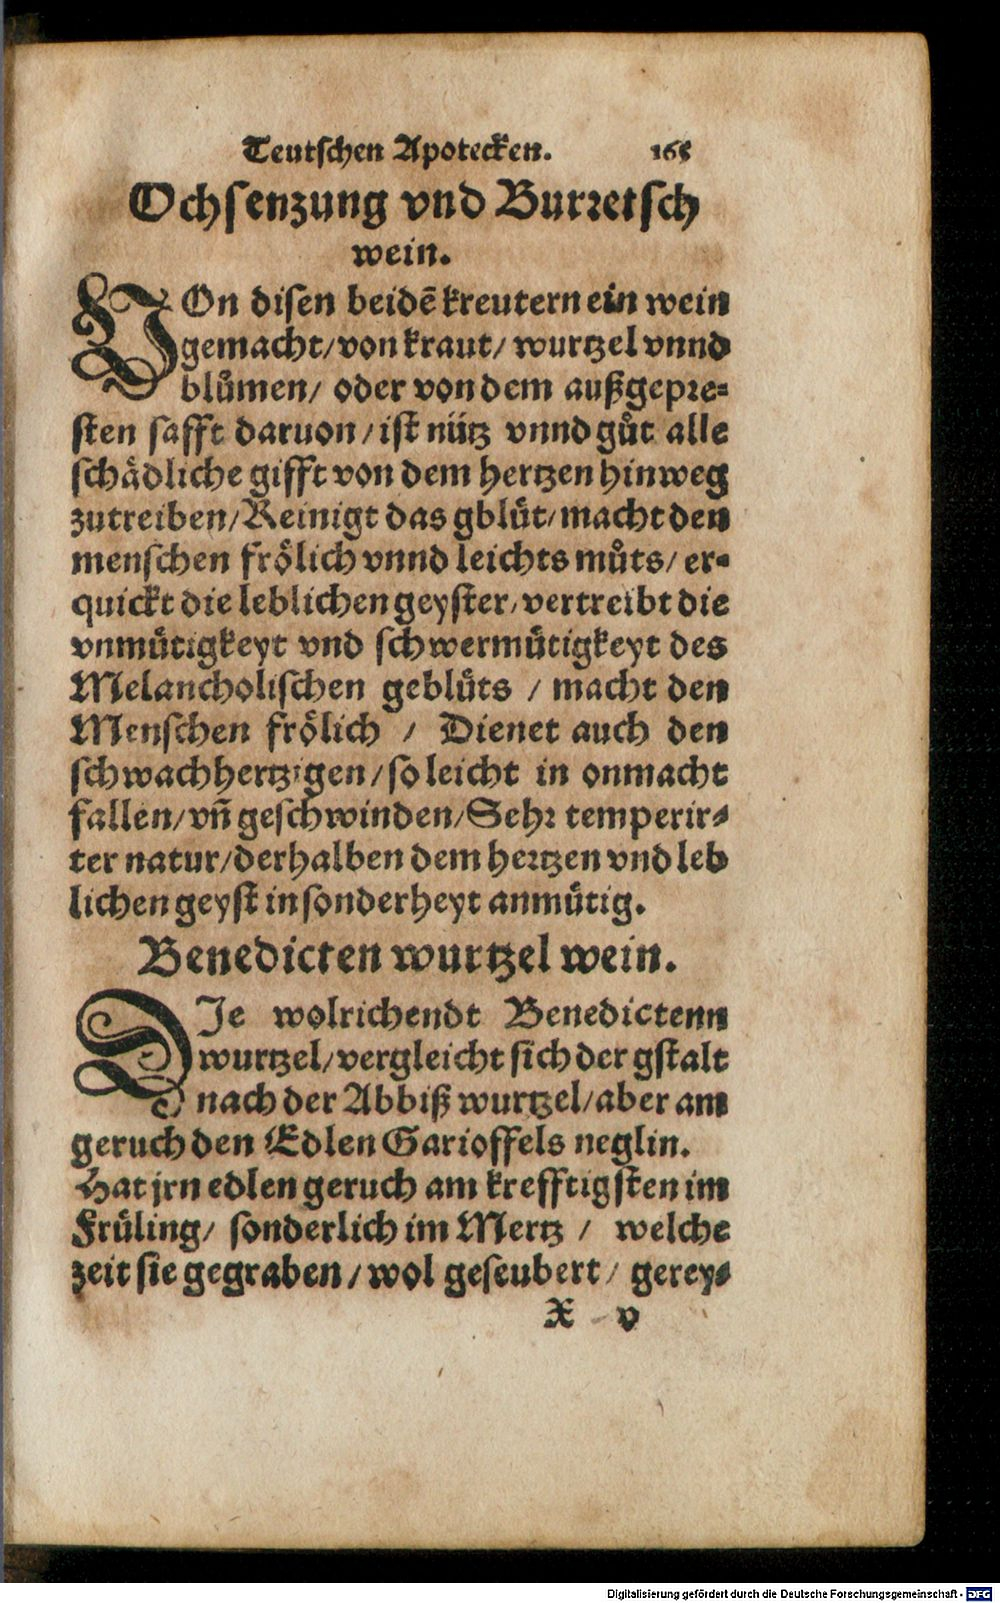 Teutschen Apotecken. 165
Ochsenzung vnd Burretsch
wein.
VOn disen beidē kreutern ein wein
gemacht/von kraut/ wurtzel vnnd
blůmen/ oder von dem außgepre-
sten safft daruon/ist nütz vnnd gůt alle
schådliche gifft von dem hertzen hinweg
zutreiben/Reinigt das gblüt/macht den
menschen frölich vnnd leichts můts/ er-
quickt die leblichen geyster/vertreibt die
vnmütigkeyt vnd schwermütigkeyt des
Melancholischen geblüts / macht den
Menschen frölich / Dienet auch den
schwachhertzigen/so leicht in onmacht
fallen/vñ geschwinden/Sehr temperir-
ter natur/derhalben dem hertzen vnd leb
lichen geyst in sonderheyt anmütig.
Benedicten wurtzel wein.
DIe wolrichendt Benedictenn
wurtzel/vergleicht sich der gstalt
nach der Abbiß wurtzel/aber am
geruch den Edlen Garioffels neglin.
Hat jrn edlen geruch am krefftigsten im
Früling/ sonderlich im Mertz / welche
zeit sie gegraben/wol geseubert/ gerey-
X v
Digitalisierung gefördert durch die Deutsche Forschungsgemeinschaft - DFG